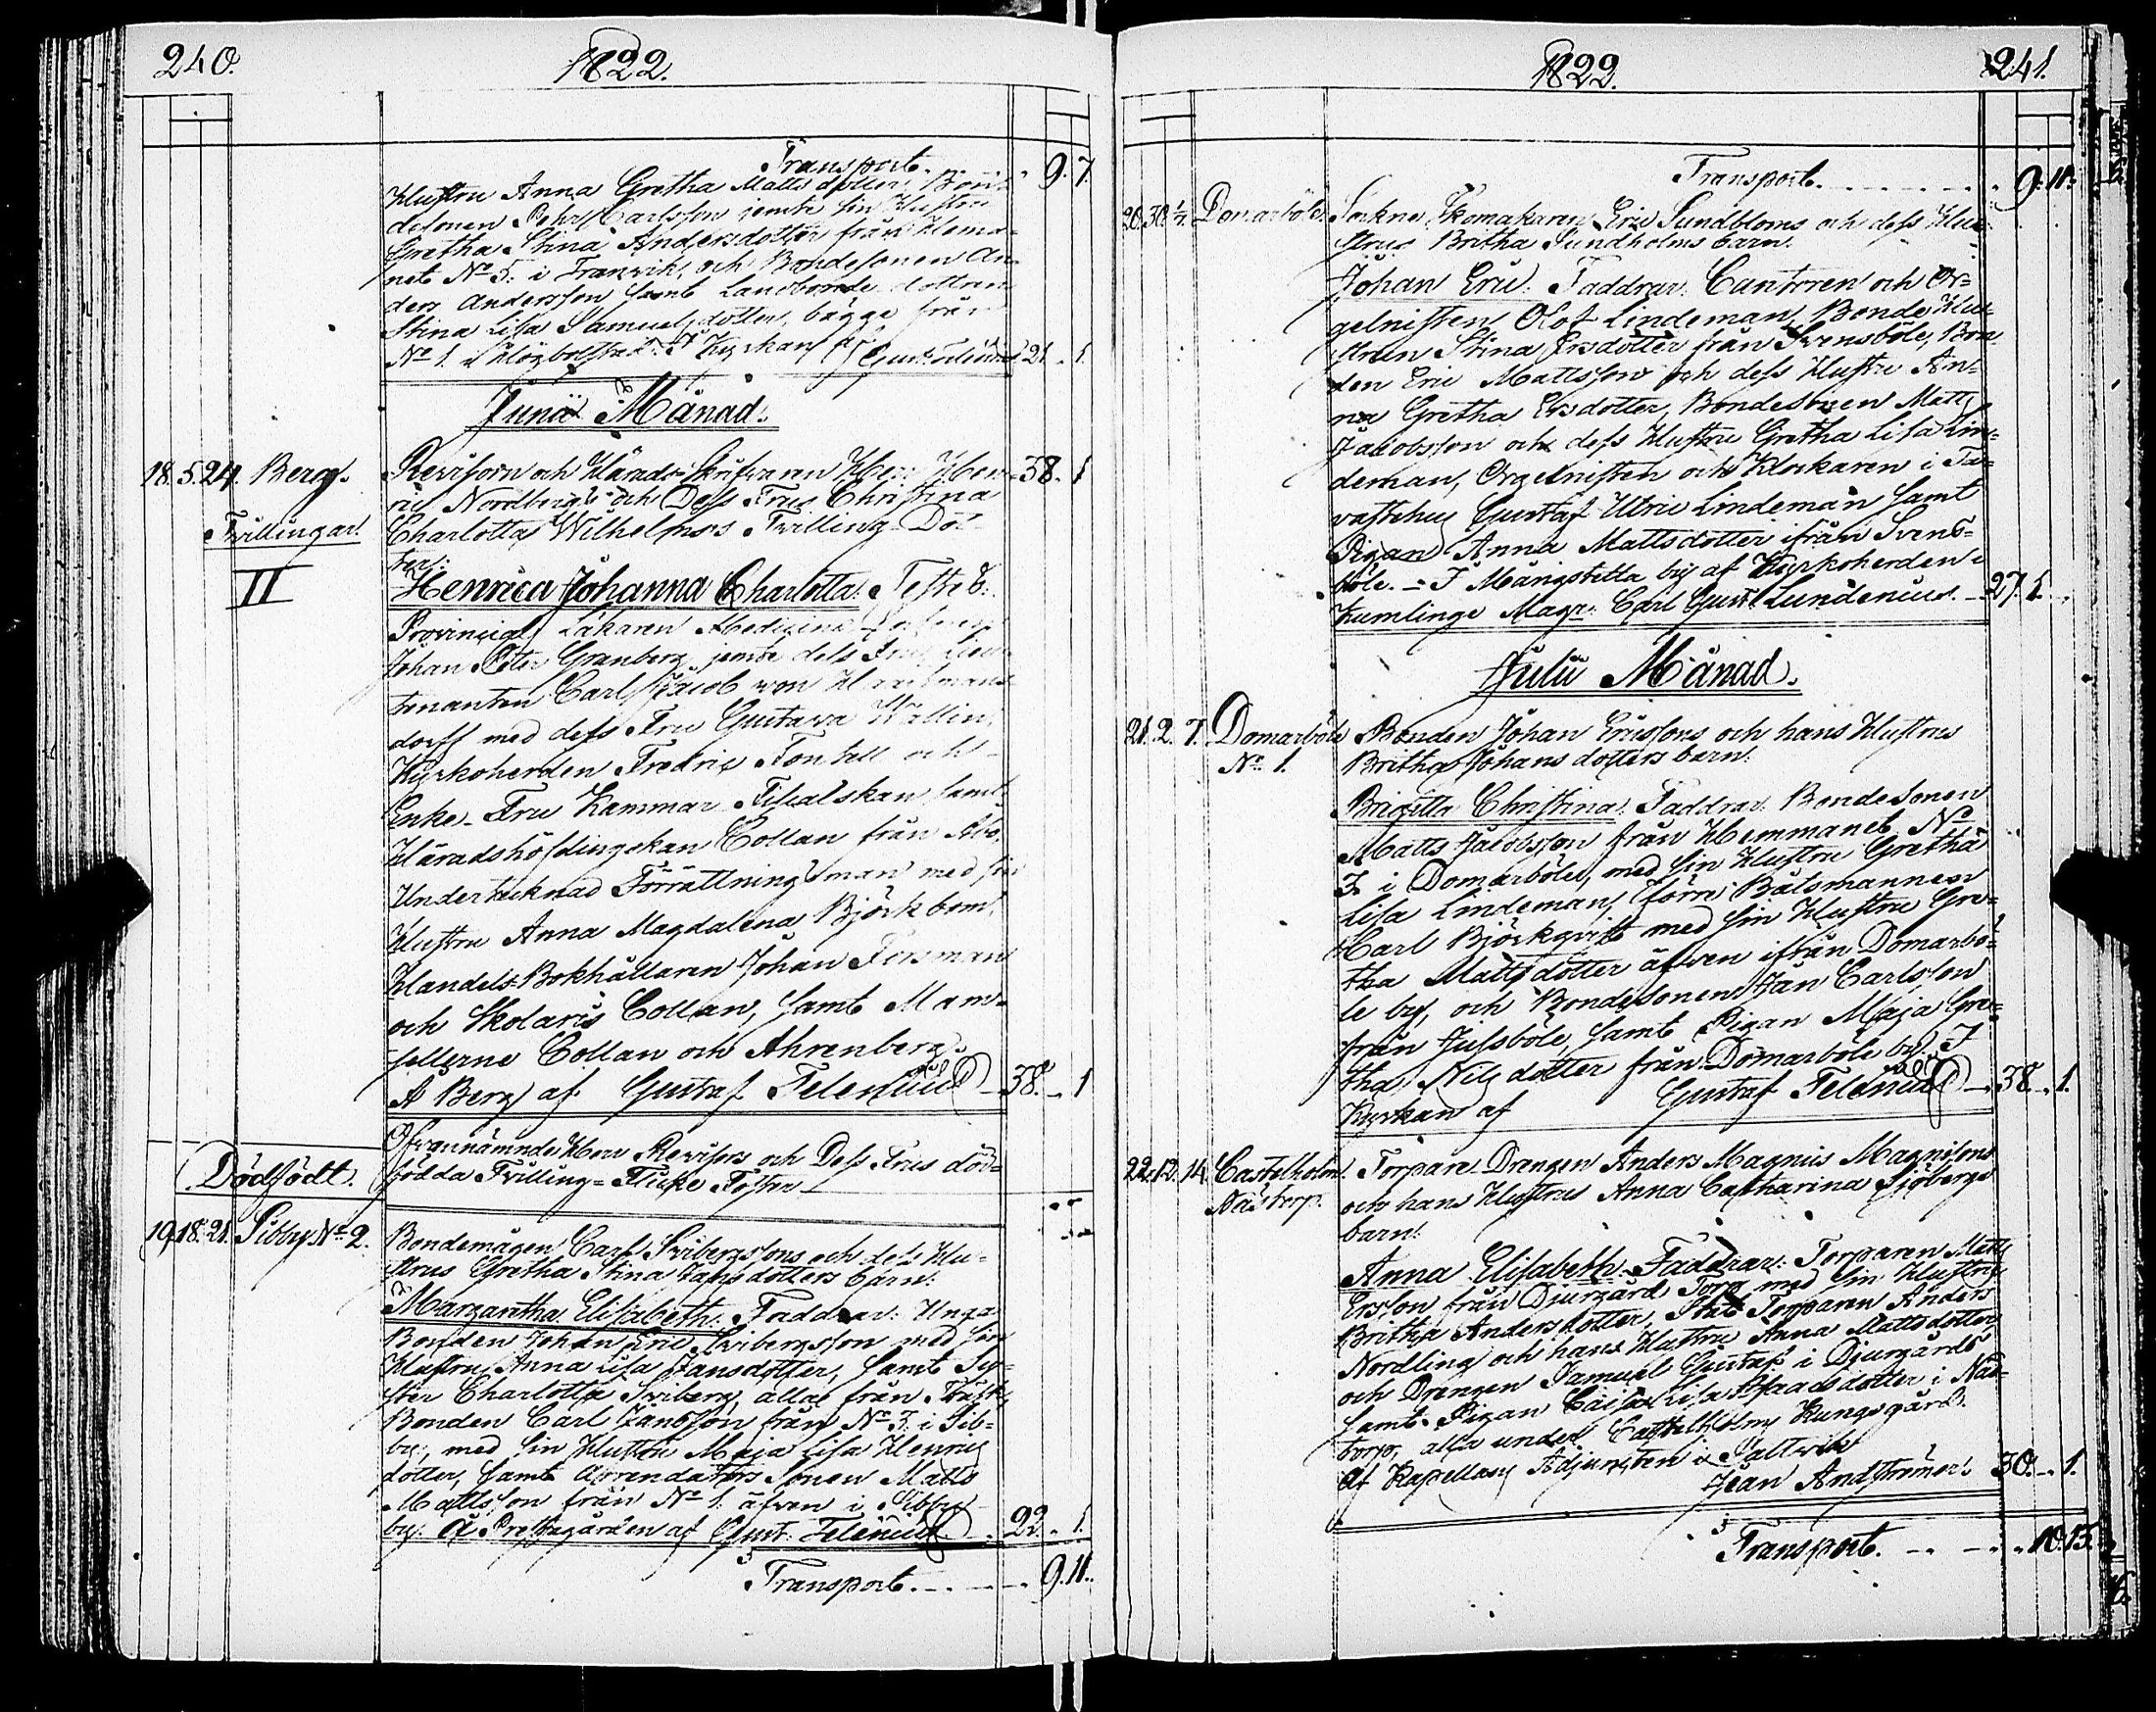 240. 1822.
Transport. 9. 7.
Hustru Anna Gretha Mattsdotter, Bon-
desonen Pehr Carlsson jemte sin Hustru
Gretha Stina Andersdotter från Hema-
net No 5. i Tranvik, och Bondesonen An-
ders Andersson samt Landbonde dottren
Stina Lisa Samuelsdotter, bägge från
No 1. i Högbolstad. I Kyrkan af 21. 1.
Junii Månad.
18. 5. 24. Berg. Revisorn och Härads Skrifvaren Herr Hen- 38. 1
ric Nordbergs och Dess Frus Christina
Tvillingar. Charlotta Wilhelms Tvilling Dot-
ter:
II Henrica Johanna Charlotta. Teste&.
Provincial Läkaren Medicine
Johan Peter Granberg jemte dess Fru, Lieu-
tenanten Carl Jacob von Hartmans-
dorff med dess Fru Gustava Wallin,
Kyrkoherden Fredric Fontell och
Enke-Fru Kammar Fiscalskan samt
Häradshöfdingskan Collan från Åbo,
Undertecknad Förrättningsman med sin
Hustru Anna Magdalena Björkbom,
Handels-Bokhållaren Johan Forsman
och Skolaris Collan, samt Mam-
sellerne Collan och Ahrenberg.
Å Berg af Gustaf Felenius 38. 1
Ofvannämnde Herr Revisors och Dess Frus död-
Dödfödt. födda Tvilling-Flicke Foster
19. 18. 21. Sibby No 2. Bondemågen Carl Sribergssons och dess Hu-
strus Gretha Stina Jansdotters barn:
Margaretha Elisabeth. Faddrar: Unga
Bonden Johan Eric Sribergsson med sin
Hustru Anna Lisa Jansdotter, samt Sys-
ster Charlotta Sriberg, alla från Träsk,
Bonden Carl Jansson från No 3. i Sib-
by, med sin Hustru Maja Lisa Henrics
dotter, samt Arrendators Sonen Matts
Mattsson från No 1. äfven i Sibby
by. Å Prestgården af Gust. Felenius 22. 1.
Transport. 9. 11.
1822. 241.
Transport. 9. 11.
20. 30. 1/7. Domarböle. Sockne Skomakaren Eric Sundbloms och dess Hu-
strus Britha Sundholms barn.
Johan Eric. Faddrar. Cantoren och Or-
gelnisten Olof Lindeman, Bonde Hu-
strun Stina Ersdotter från Svensböle, Bon-
den Eric Mattsson och dess Hustru An-
na Gretha Ersdotter, Bondesonen Matts
Jacobsson och dess Hustru Gretha Lisa Lin-
deman, Orgelnisten och Klockaren i Ta-
vastehus Gustaf Ulric Lindeman samt
Pigan Anna Mattsdotter ifrån Svens-
böle. - I Mångstekta by af Kyrkoherden i
Kumlinge Magr. Carl Gust. Lundenius. 27. 1.
Julii Månad.
21. 2. 7. Domarböle Bonden Johan Ericssons och hans Hustrus
No 1. Britha Johansdotters barn:
Brigitta Christina. Faddrar. Bondesonen
Matts Jacobsson från Hemmanet No
3. i Domarböle, med sin Hustru Gretha
Lisa Lindeman, förre Båtsmannen
Carl Björkqvist med sin Hustru Gre-
tha Mattsdotter äfven ifrån Domarbö-
le by, och Bondesonen Jan Carlsson
från Jussböle, samt Pigan Maja Gre-
tha Nilsdotter från Domarböle by. I
Kyrkan af Gustaf Felenius 38. 1.
22. 12. 14. Castelholm. Torpare Drängen Anders Magnus Magnissons
Näs torp. och hans Hustrus Anna Catharina Sjöbergs
barn:
Anna Elisabeth. Faddrar: Torparen Matts
Ersson från Djurgård Torp med sin Hustru
Britha Andersdotter, Stat Torparen Anders
Nordling och hans Hustru Anna Mattsdotter,
och Drängen Samuel Gustaf i Djurgårds
samt Pigan Caisa Lisa dotter i Näs-
torp, alla under Castelholms Kungsgård.
Af Kapellans Adjuncten i Saltvik
Jean Andströmer. 30. 1.
Transport. 10. 13.